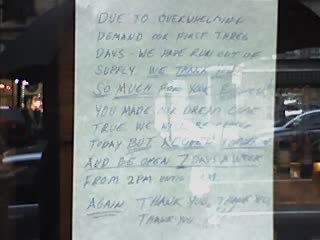 DUE TO OVERWHELMING
DEMAND OUR FIRST THREE
DAYS - WE HAVE RUN OUT OF
SUPPLY. WE THANK YOU
SO MUCH FOR YOUR BUSINESS
YOU MADE OUR DREAM COME
TRUE WE WILL BE
TODAY BUT
AND BE OPEN 7 DAYS A WEEK
FROM 2PM UNTIL
AGAIN THANK YOU, THANK YOU
THANK YOU